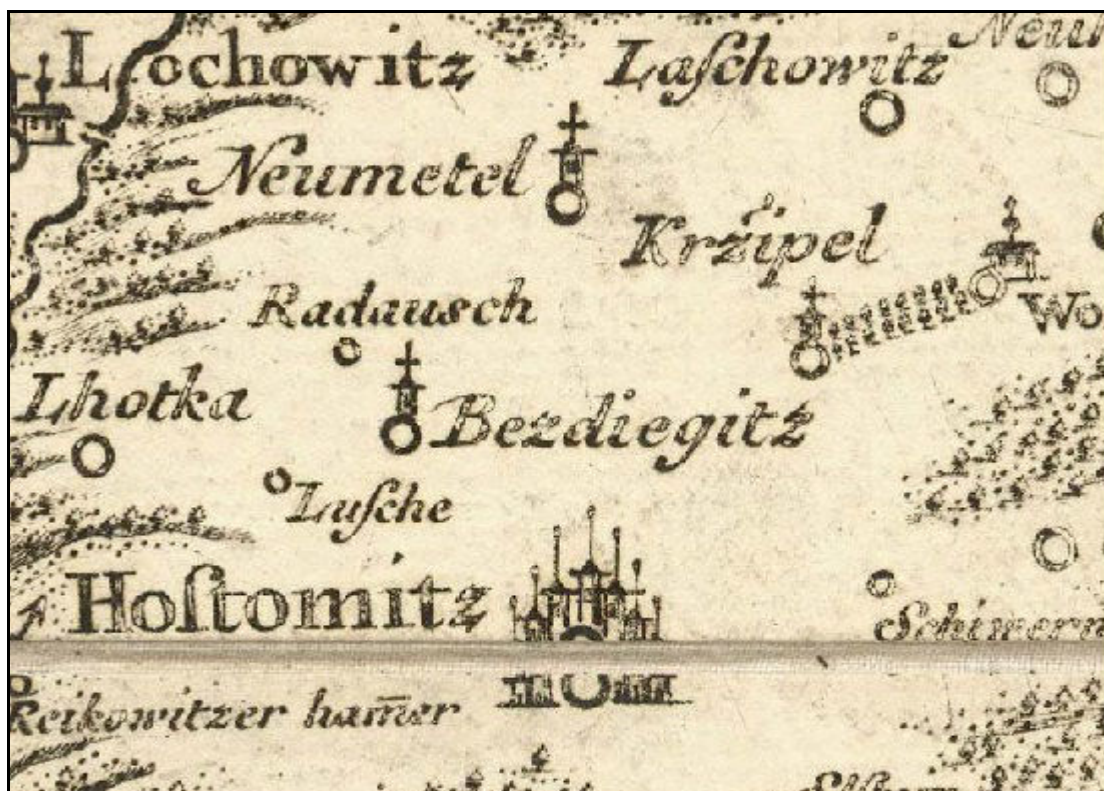 Lochowitz
Laſchowitz
Neumetel
Krzipel
Radausch
Lhotka
Bezdiegitz
Luſche
Hoſtomitz
Reikowitzer ham̄er